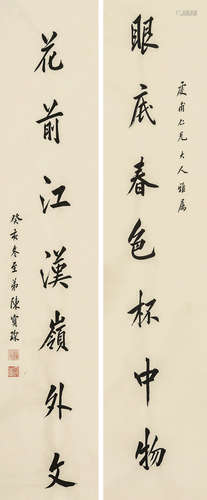 眼底春色杯中物
虞甫仁兄大人雅屬
花前江漢嶺外文
癸亥冬至弟陳寶琛